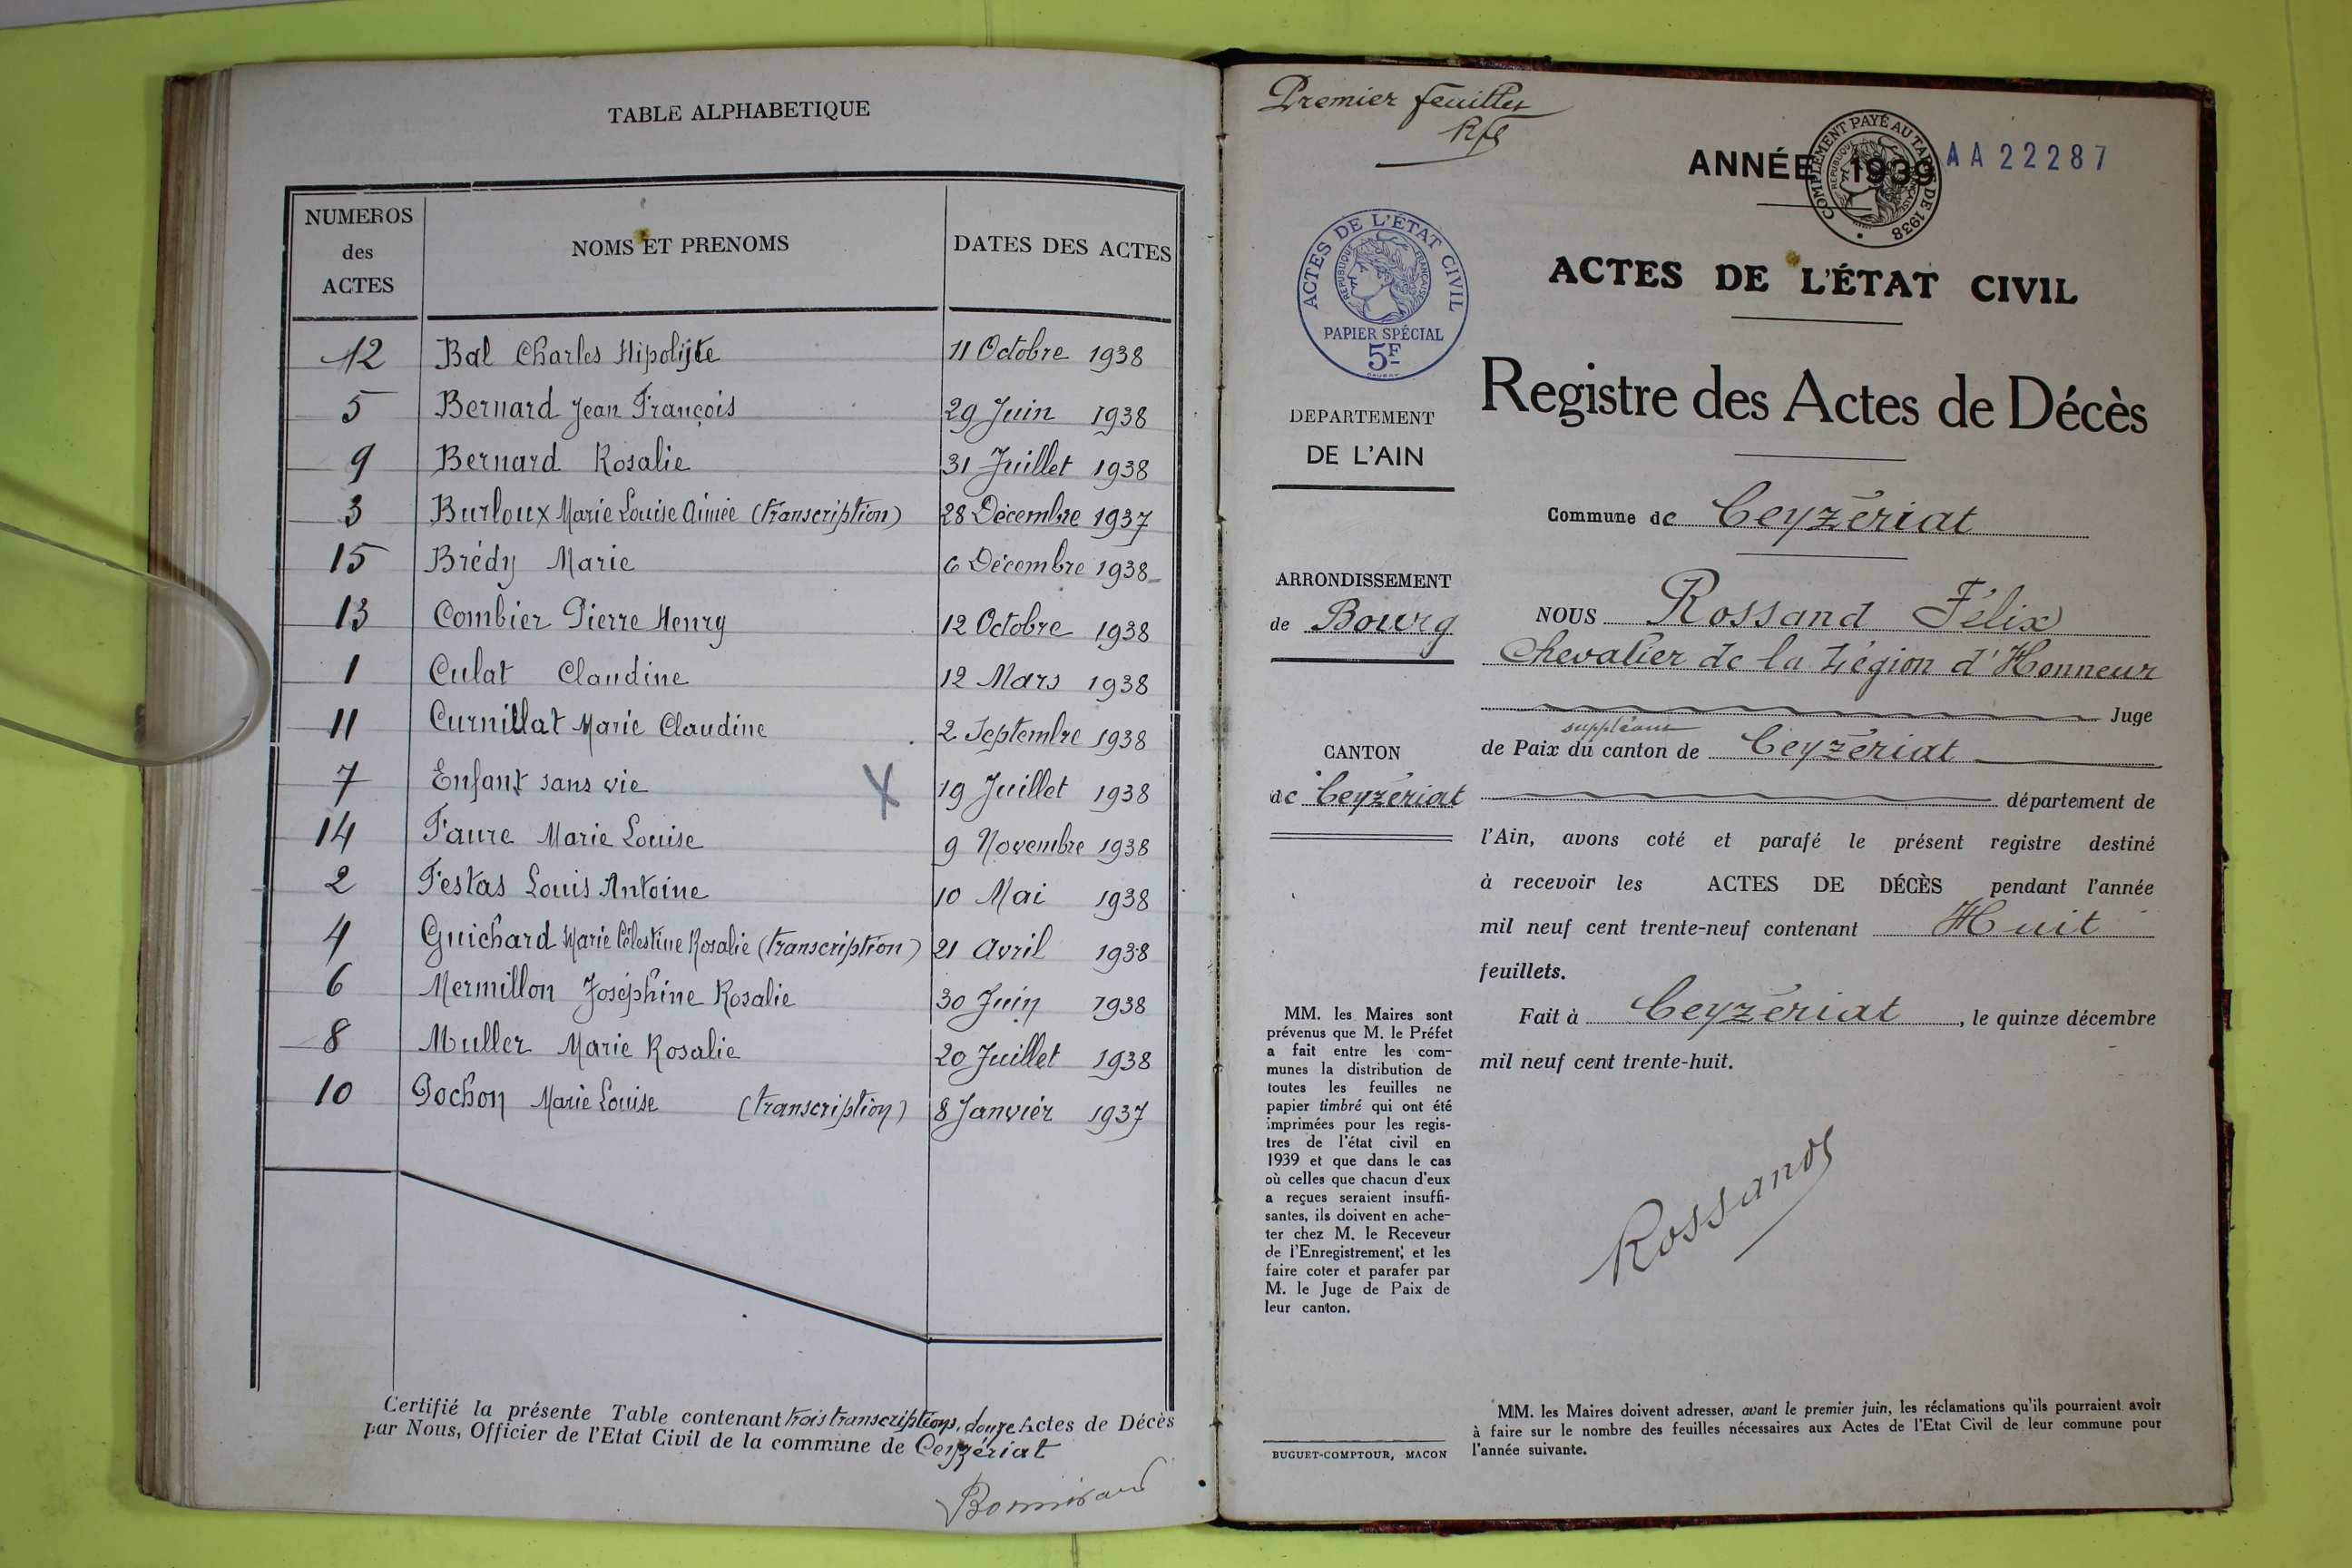 TABLE ALPHABETIQUE
NUMEROS
des
ACTES
NOMS ET PRENOMS
DATES DES ACTES
12 Bal Charles Hipolyte 11 Octobre 1938
5 Bernard Jean François 29 Juin 1938
9 Bernard Rosalie 31 Juillet 1938
3 Burloux Marie Louise Aimée (transcription) 28 Décembre 1937
15 Brédy Marie 6 Décembre 1938
13 Combier Pierre Henry 12 Octobre 1938
1 Culat Claudine 12 Mars 1938
11 Curnillat Marie Claudine 2 Septembre 1938
7 Enfant sans vie X 19 Juillet 1938
14 Faure Marie Louise 9 Novembre 1938
2 Festas Louis Antoine 10 Mai 1938
4 Guichard Marie Célestine Rosalie (transcription) 21 Avril 1938
6 Mermillon Joséphine Rosalie 30 Juin 1938
8 Muller Marie Rosalie 20 Juillet 1938
10 Pochon Marie Louise (transcription) 8 Janvier 1937
Certifié la présente Table contenant trois transcriptions, douze Actes de Décès
par Nous, Officier de l'Etat Civil de la commune de Ceyzériat
Premier feuillet
ANNÉE 1939
COMPLEMENT PAYÉ AU TARIF DE 1938
REPUBLIQUE FRANÇAISE
AA22287
ACTES DE L'ÉTAT CIVIL
REPUBLIQUE FRANÇAISE
PAPIER SPÉCIAL
5F
DEPARTEMENT
DE L'AIN
ARRONDISSEMENT
de Bourg
CANTON
de Ceyzériat
MM. les Maires sont
prévenus que M. le Préfet
a fait entre les com-
munes la distribution de
toutes les feuilles ne
papier timbré qui ont été
imprimées pour les regis-
tres de l'état civil en
1939 et que dans le cas
où celles que chacun d'eux
a reçues seraient insuffi-
santes, ils doivent en ache-
ter chez M. le Receveur
de l'Enregistrement, et les
faire coter et parafer par
M. le Juge de Paix de
leur canton.
BUGUET-COMPTOUR, MACON
ACTES DE L'ÉTAT CIVIL
Registre des Actes de Décès
Commune de Ceyzériat
NOUS Rossand Félix
Chevalier de la Légion d'Honneur
Juge
suppléant
de Paix du canton de Ceyzériat
département de
l'Ain, avons coté et parafé le présent registre destiné
à recevoir les ACTES DE DÉCÈS pendant l'année
mil neuf cent trente-neuf contenant Huit
feuillets.
Fait à Ceyzériat, le quinze décembre
mil neuf cent trente-huit.
Rossand
MM. les Maires doivent adresser, avant le premier juin, les réclamations qu'ils pourraient avoir
à faire sur le nombre des feuilles nécessaires aux Actes de l'Etat Civil de leur commune pour
l'année suivante.